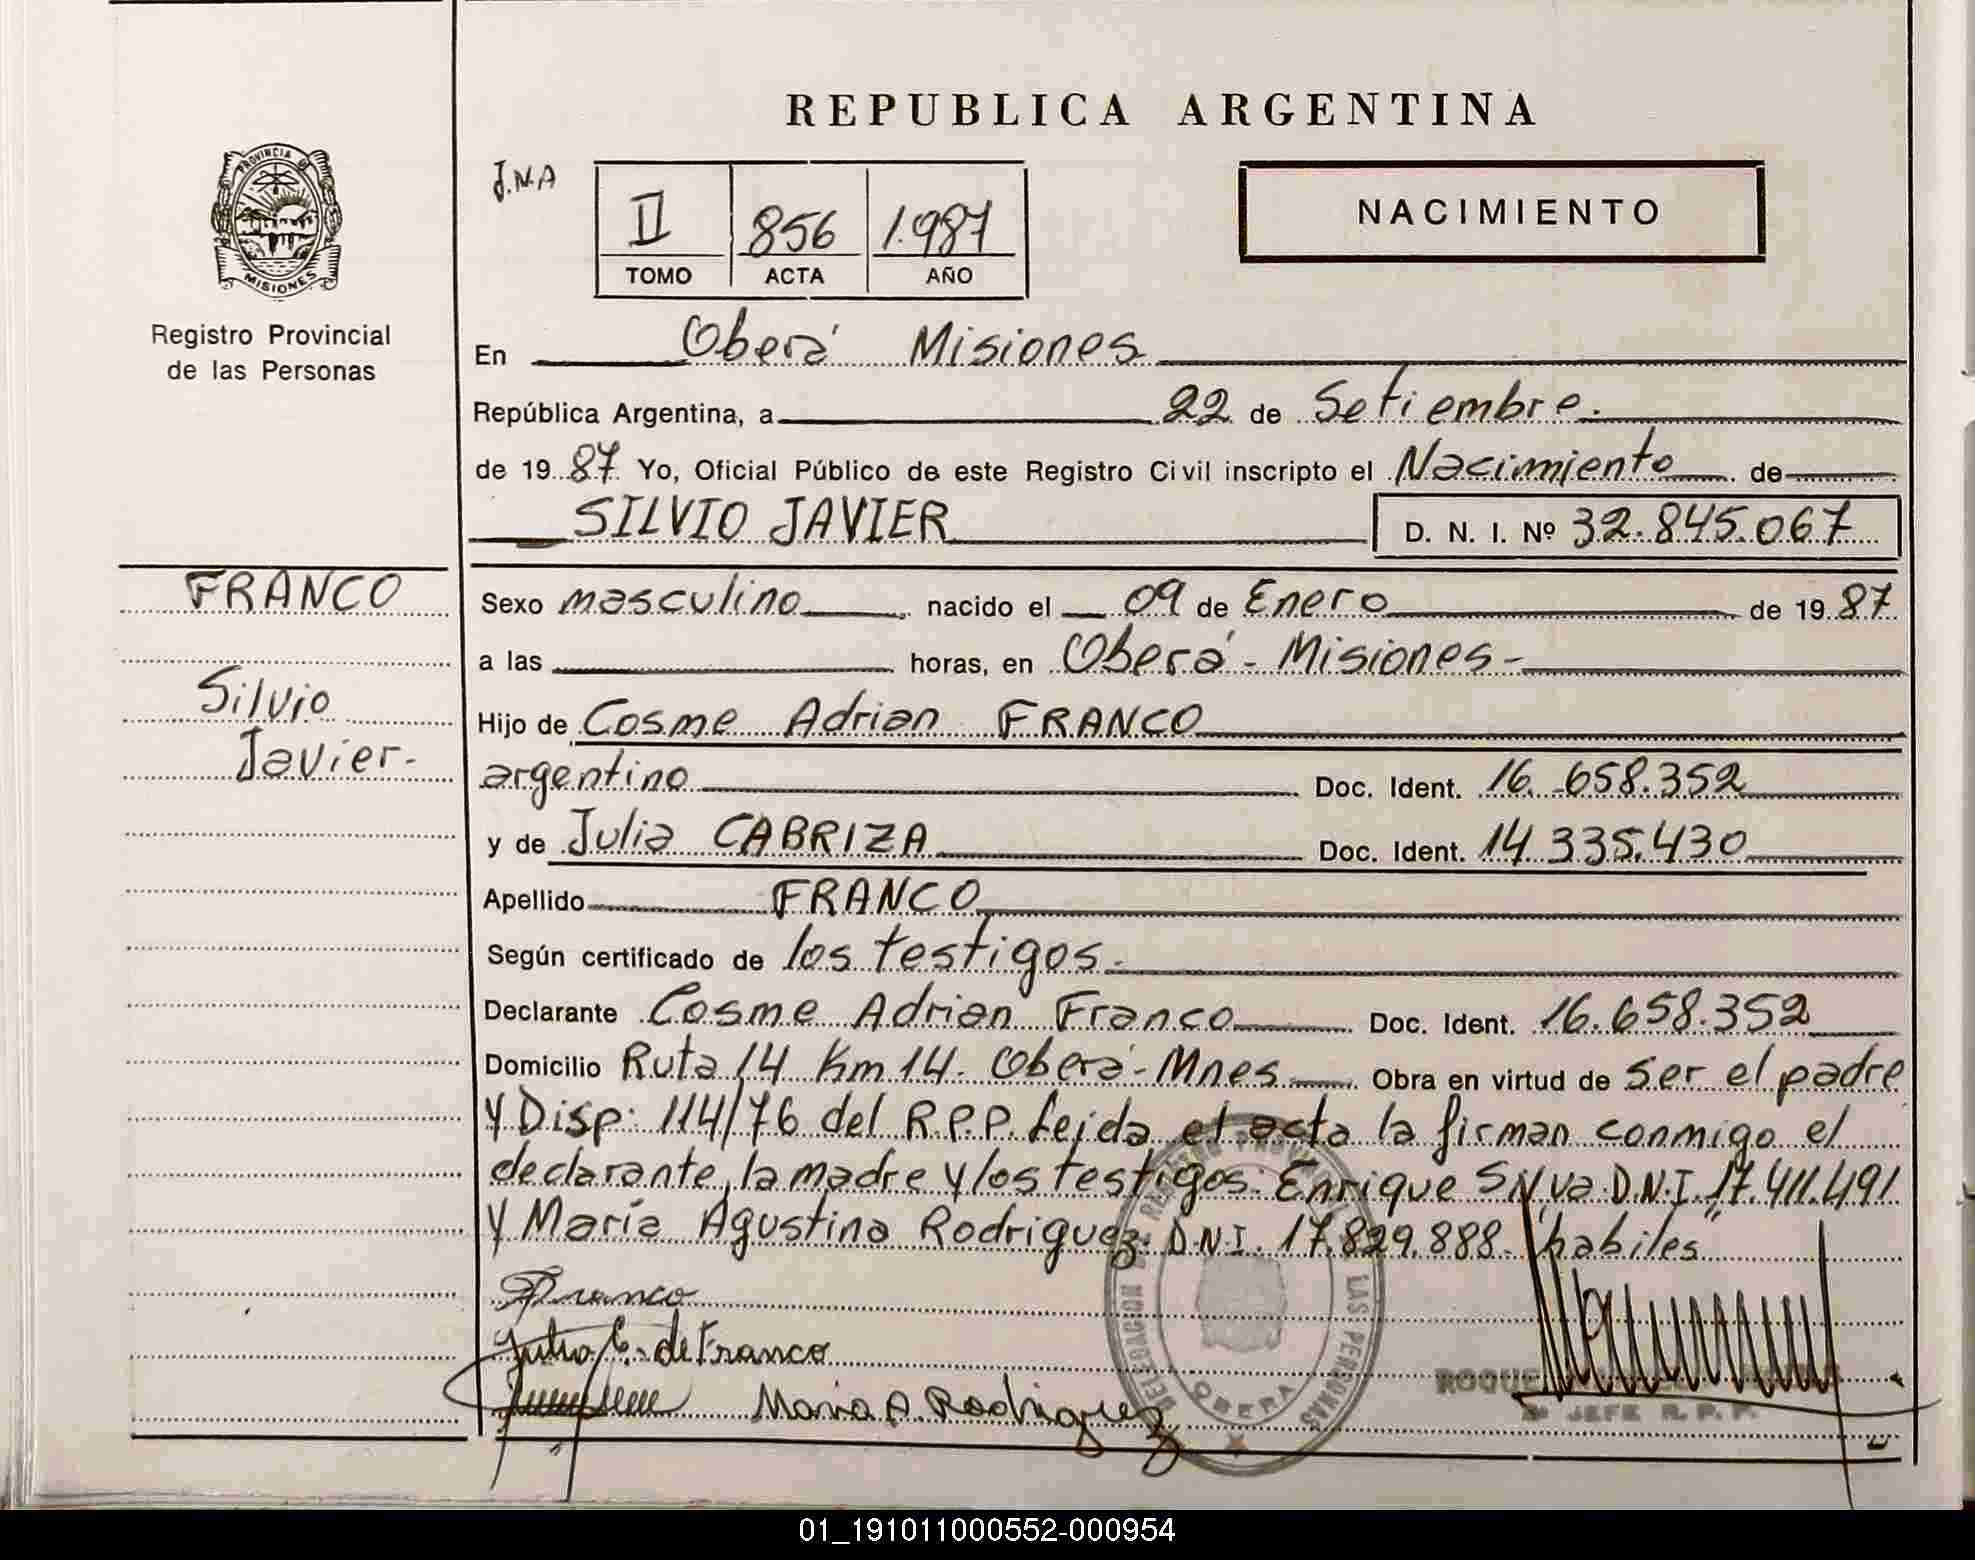 REPUBLICA ARGENTINA
PROVINCIA DE
MISIONES
Registro Provincial
de las Personas
J.N.A
II 856 1.987
TOMO ACTA AÑO
NACIMIENTO
En Oberá Misiones
República Argentina, a 22 de Setiembre.
de 19 87 Yo, Oficial Público de este Registro Civil inscripto el Nacimiento de
SILVIO JAVIER D. N. I. Nº 32.845.067
FRANCO
Silvio
Javier-
Sexo masculino nacido el 09 de Enero de 19 87
a las horas, en Oberá - Misiones -
Hijo de Cosme Adrian FRANCO
argentino Doc. Ident. 16.658.352
y de Julia CABRIZA Doc. Ident. 14.335.430
Apellido FRANCO
Según certificado de los testigos.-
Declarante Cosme Adrian Franco Doc. Ident. 16.658.352
Domicilio Ruta 14 Km 14- Oberá-Mnes Obra en virtud de ser el padre
y Disp: 114/76 del R.P.P. Leida el acta la firman conmigo el
declarante, la madre y los testigos: Enrique Silva D.N.I. 17.411.491
y María Agustina Rodriguez. D.N.I. 17.829.888- "habiles"
Franco
Julia C. de Franco
Maria A. Rodriguez
DELEGACION REGISTRO PROVINCIAL DE LAS PERSONAS
OBERA
ROQUE
JEFE R. P. P.
01_191011000552-000954